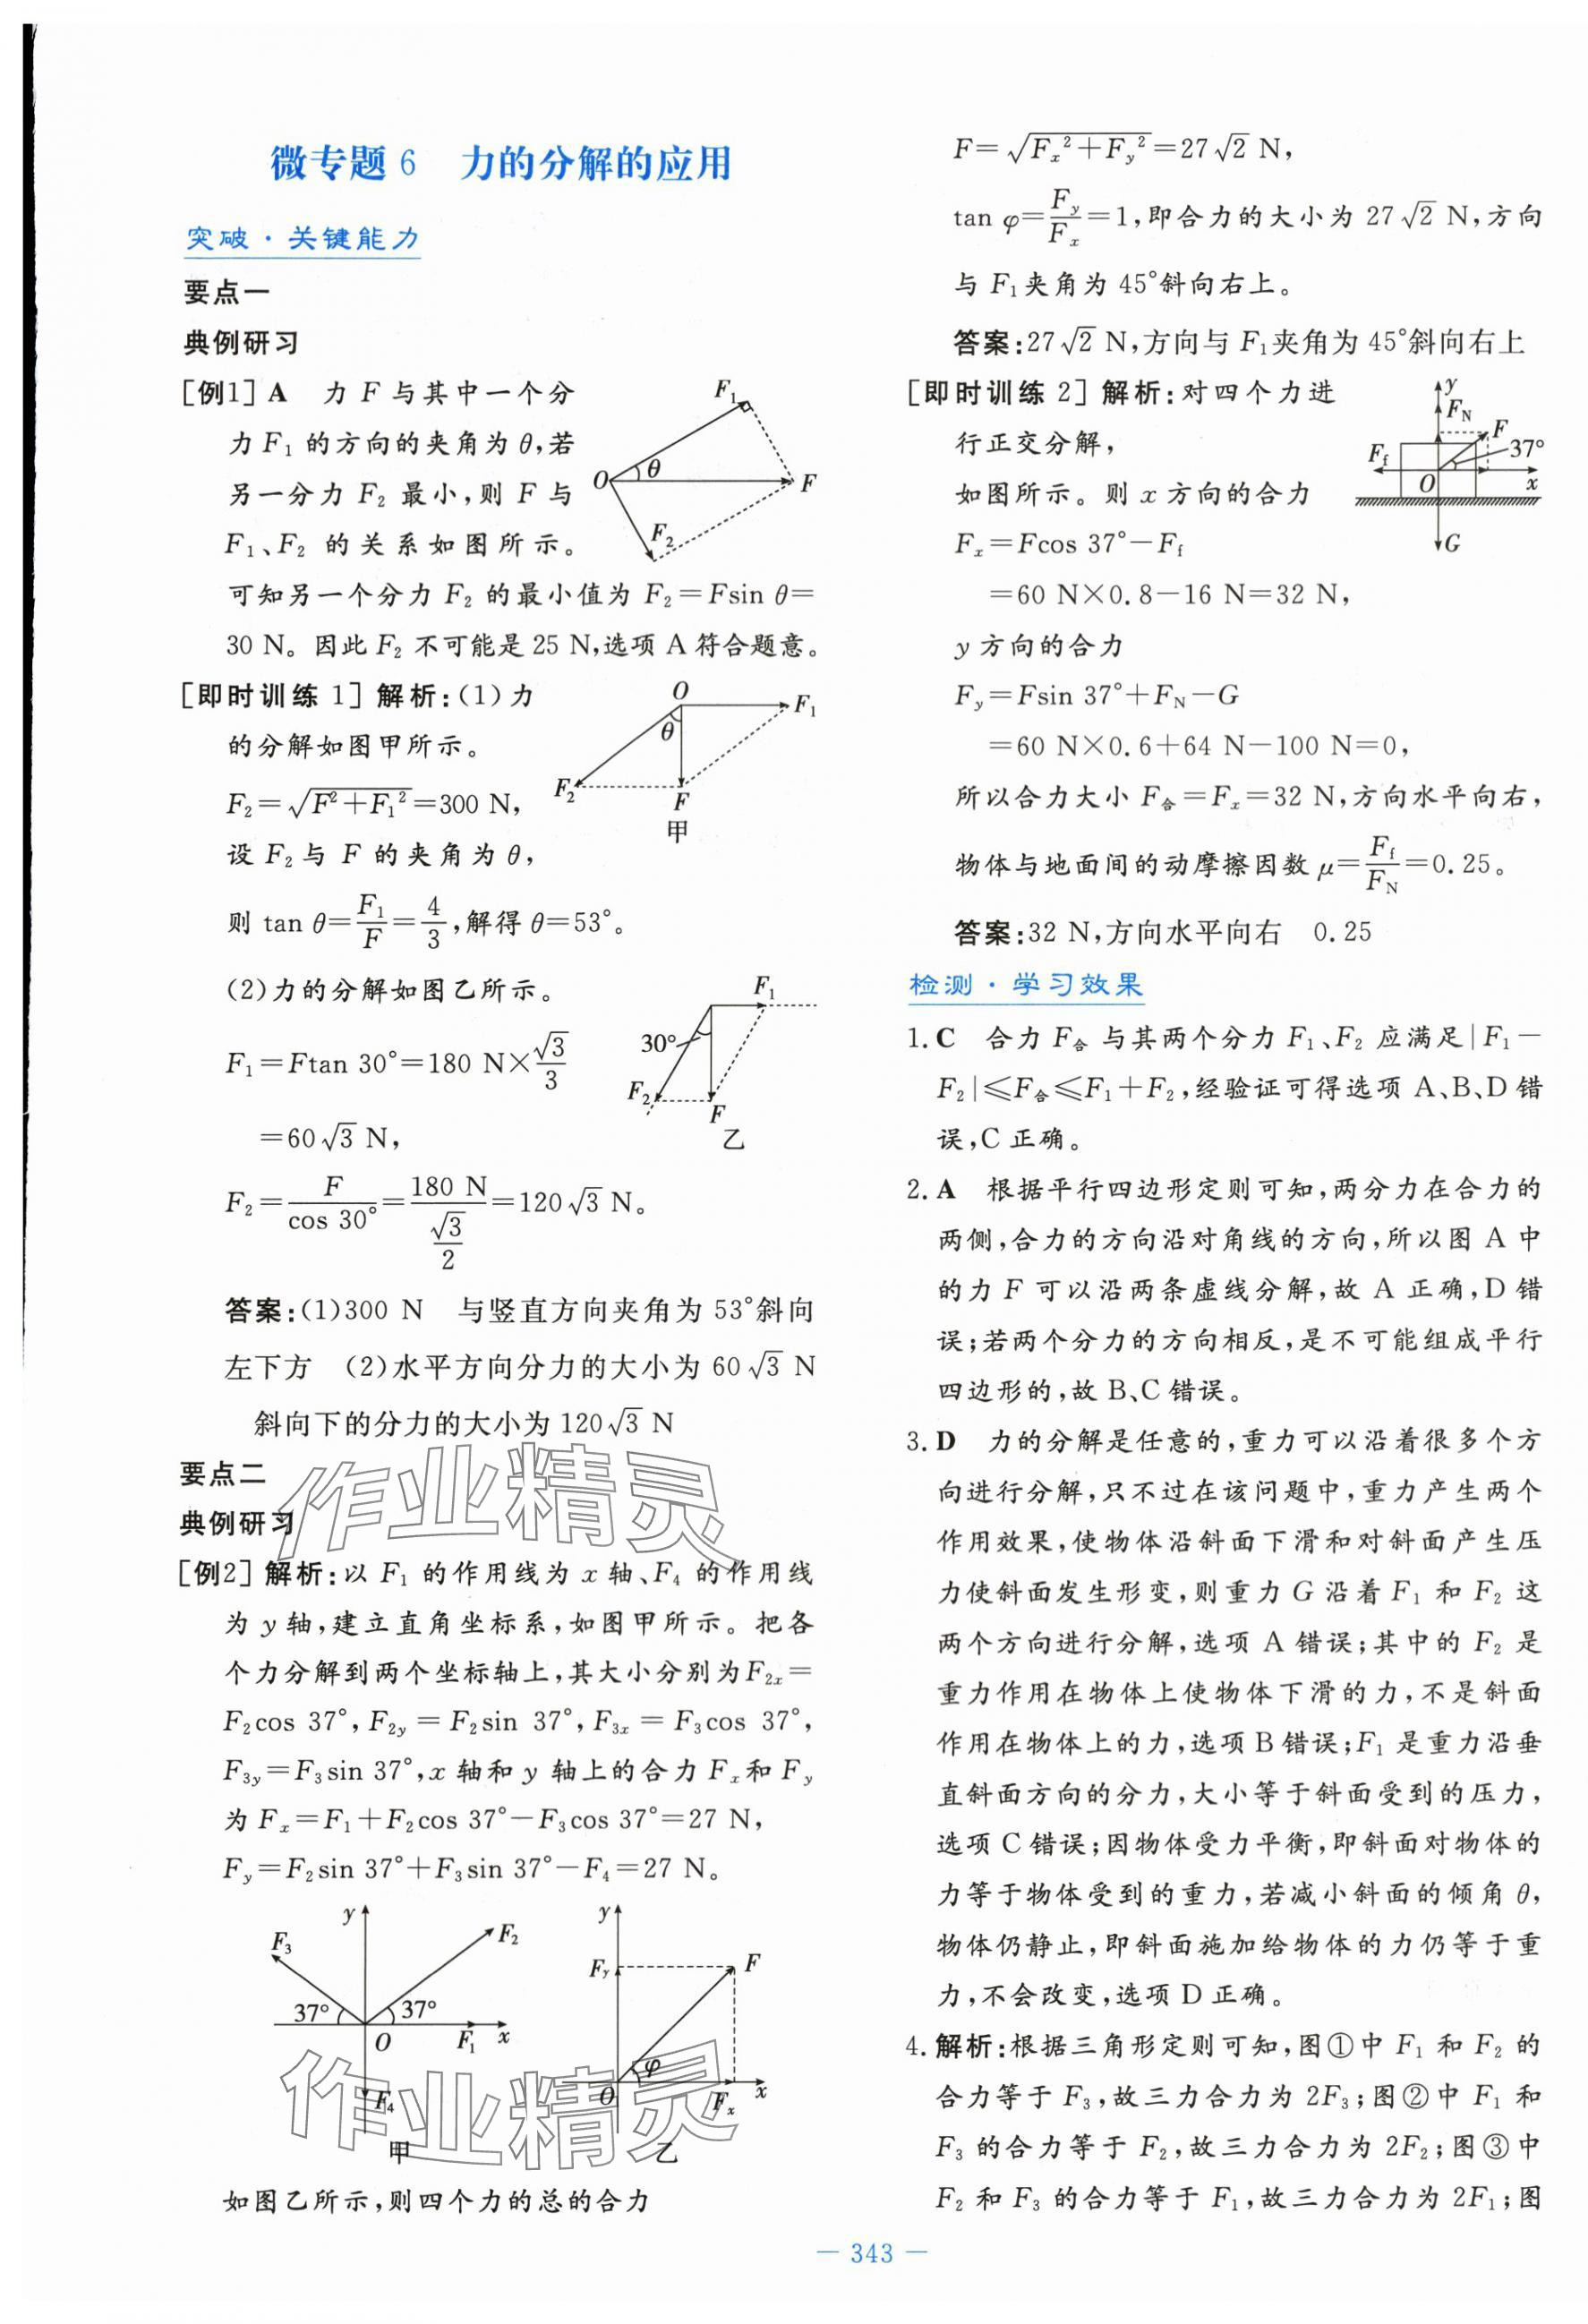 微专题6 力的分解的应用
突破·关键能力
要点一
典例研习
[例1] A 力 F 与其中一个分
力 F₁ 的方向的夹角为 θ,若
另一分力 F₂ 最小,则 F 与
F₁、F₂ 的关系如图所示。
F₁
O
θ
F
F₂
可知另一个分力 F₂ 的最小值为 F₂=Fsin θ=
30 N。因此 F₂ 不可能是 25 N,选项 A 符合题意。
[即时训练 1] 解析:(1)力
的分解如图甲所示。
F₂=√(F²+F₁²)=300 N,
设 F₂ 与 F 的夹角为 θ,
O
F₁
θ
F₂
F
甲
则 tan θ=F₁/F=4/3,解得 θ=53°。
(2)力的分解如图乙所示。
F₁=Ftan 30°=180 N×√3/3
=60√3 N,
F₁
30°
F₂
F
乙
F₂=F/cos 30°=180 N/(√3/2)=120√3 N。
答案:(1)300 N 与竖直方向夹角为 53°斜向
左下方 (2)水平方向分力的大小为 60√3 N
斜向下的分力的大小为 120√3 N
要点二
典例研习
[例2] 解析:以 F₁ 的作用线为 x 轴、F₄ 的作用线
为 y 轴,建立直角坐标系,如图甲所示。把各
个力分解到两个坐标轴上,其大小分别为F₂ₓ=
F₂cos 37°,F₂y=F₂sin 37°,F₃ₓ=F₃cos 37°,
F₃y=F₃sin 37°,x 轴和 y 轴上的合力 Fₓ和 Fy
为 Fₓ=F₁+F₂cos 37°-F₃cos 37°=27 N,
Fy=F₂sin 37°+F₃sin 37°-F₄=27 N。
y
F₃
F₂
37°
37°
O
F₁
x
F₄
甲
y
Fy
F
φ
O
Fₓ
x
乙
如图乙所示,则四个力的总的合力
F=√(Fₓ²+Fy²)=27√2 N,
tan φ=Fy/Fₓ=1,即合力的大小为 27√2 N,方向
与 F₁夹角为 45°斜向右上。
答案:27√2 N,方向与 F₁夹角为 45°斜向右上
[即时训练 2] 解析:对四个力进
行正交分解,
如图所示。则 x 方向的合力
y
F_N
F
F_f
37°
O
x
G
Fₓ=Fcos 37°-F_f
=60 N×0.8-16 N=32 N,
y 方向的合力
Fy=Fsin 37°+F_N-G
=60 N×0.6+64 N-100 N=0,
所以合力大小 F合=Fₓ=32 N,方向水平向右,
物体与地面间的动摩擦因数 μ=F_f/F_N=0.25。
答案:32 N,方向水平向右 0.25
检测·学习效果
1. C 合力 F合 与其两个分力 F₁、F₂ 应满足|F₁-
F₂|≤F合≤F₁+F₂,经验证可得选项 A、B、D 错
误,C 正确。
2. A 根据平行四边形定则可知,两分力在合力的
两侧,合力的方向沿对角线的方向,所以图 A 中
的力 F 可以沿两条虚线分解,故 A 正确,D 错
误;若两个分力的方向相反,是不可能组成平行
四边形的,故 B、C 错误。
3. D 力的分解是任意的,重力可以沿着很多个方
向进行分解,只不过在该问题中,重力产生两个
作用效果,使物体沿斜面下滑和对斜面产生压
力使斜面发生形变,则重力 G 沿着 F₁ 和 F₂ 这
两个方向进行分解,选项 A 错误;其中的 F₂ 是
重力作用在物体上使物体下滑的力,不是斜面
作用在物体上的力,选项 B 错误;F₁ 是重力沿垂
直斜面方向的分力,大小等于斜面受到的压力,
选项 C 错误;因物体受力平衡,即斜面对物体的
力等于物体受到的重力,若减小斜面的倾角 θ,
物体仍静止,即斜面施加给物体的力仍等于重
力,不会改变,选项 D 正确。
4. 解析:根据三角形定则可知,图①中 F₁ 和 F₂ 的
合力等于 F₃,故三力合力为 2F₃;图②中 F₁ 和
F₃ 的合力等于 F₂,故三力合力为 2F₂;图③中
F₂ 和 F₃ 的合力等于 F₁,故三力合力为 2F₁;图
作业精灵
作业精灵
— 343 —